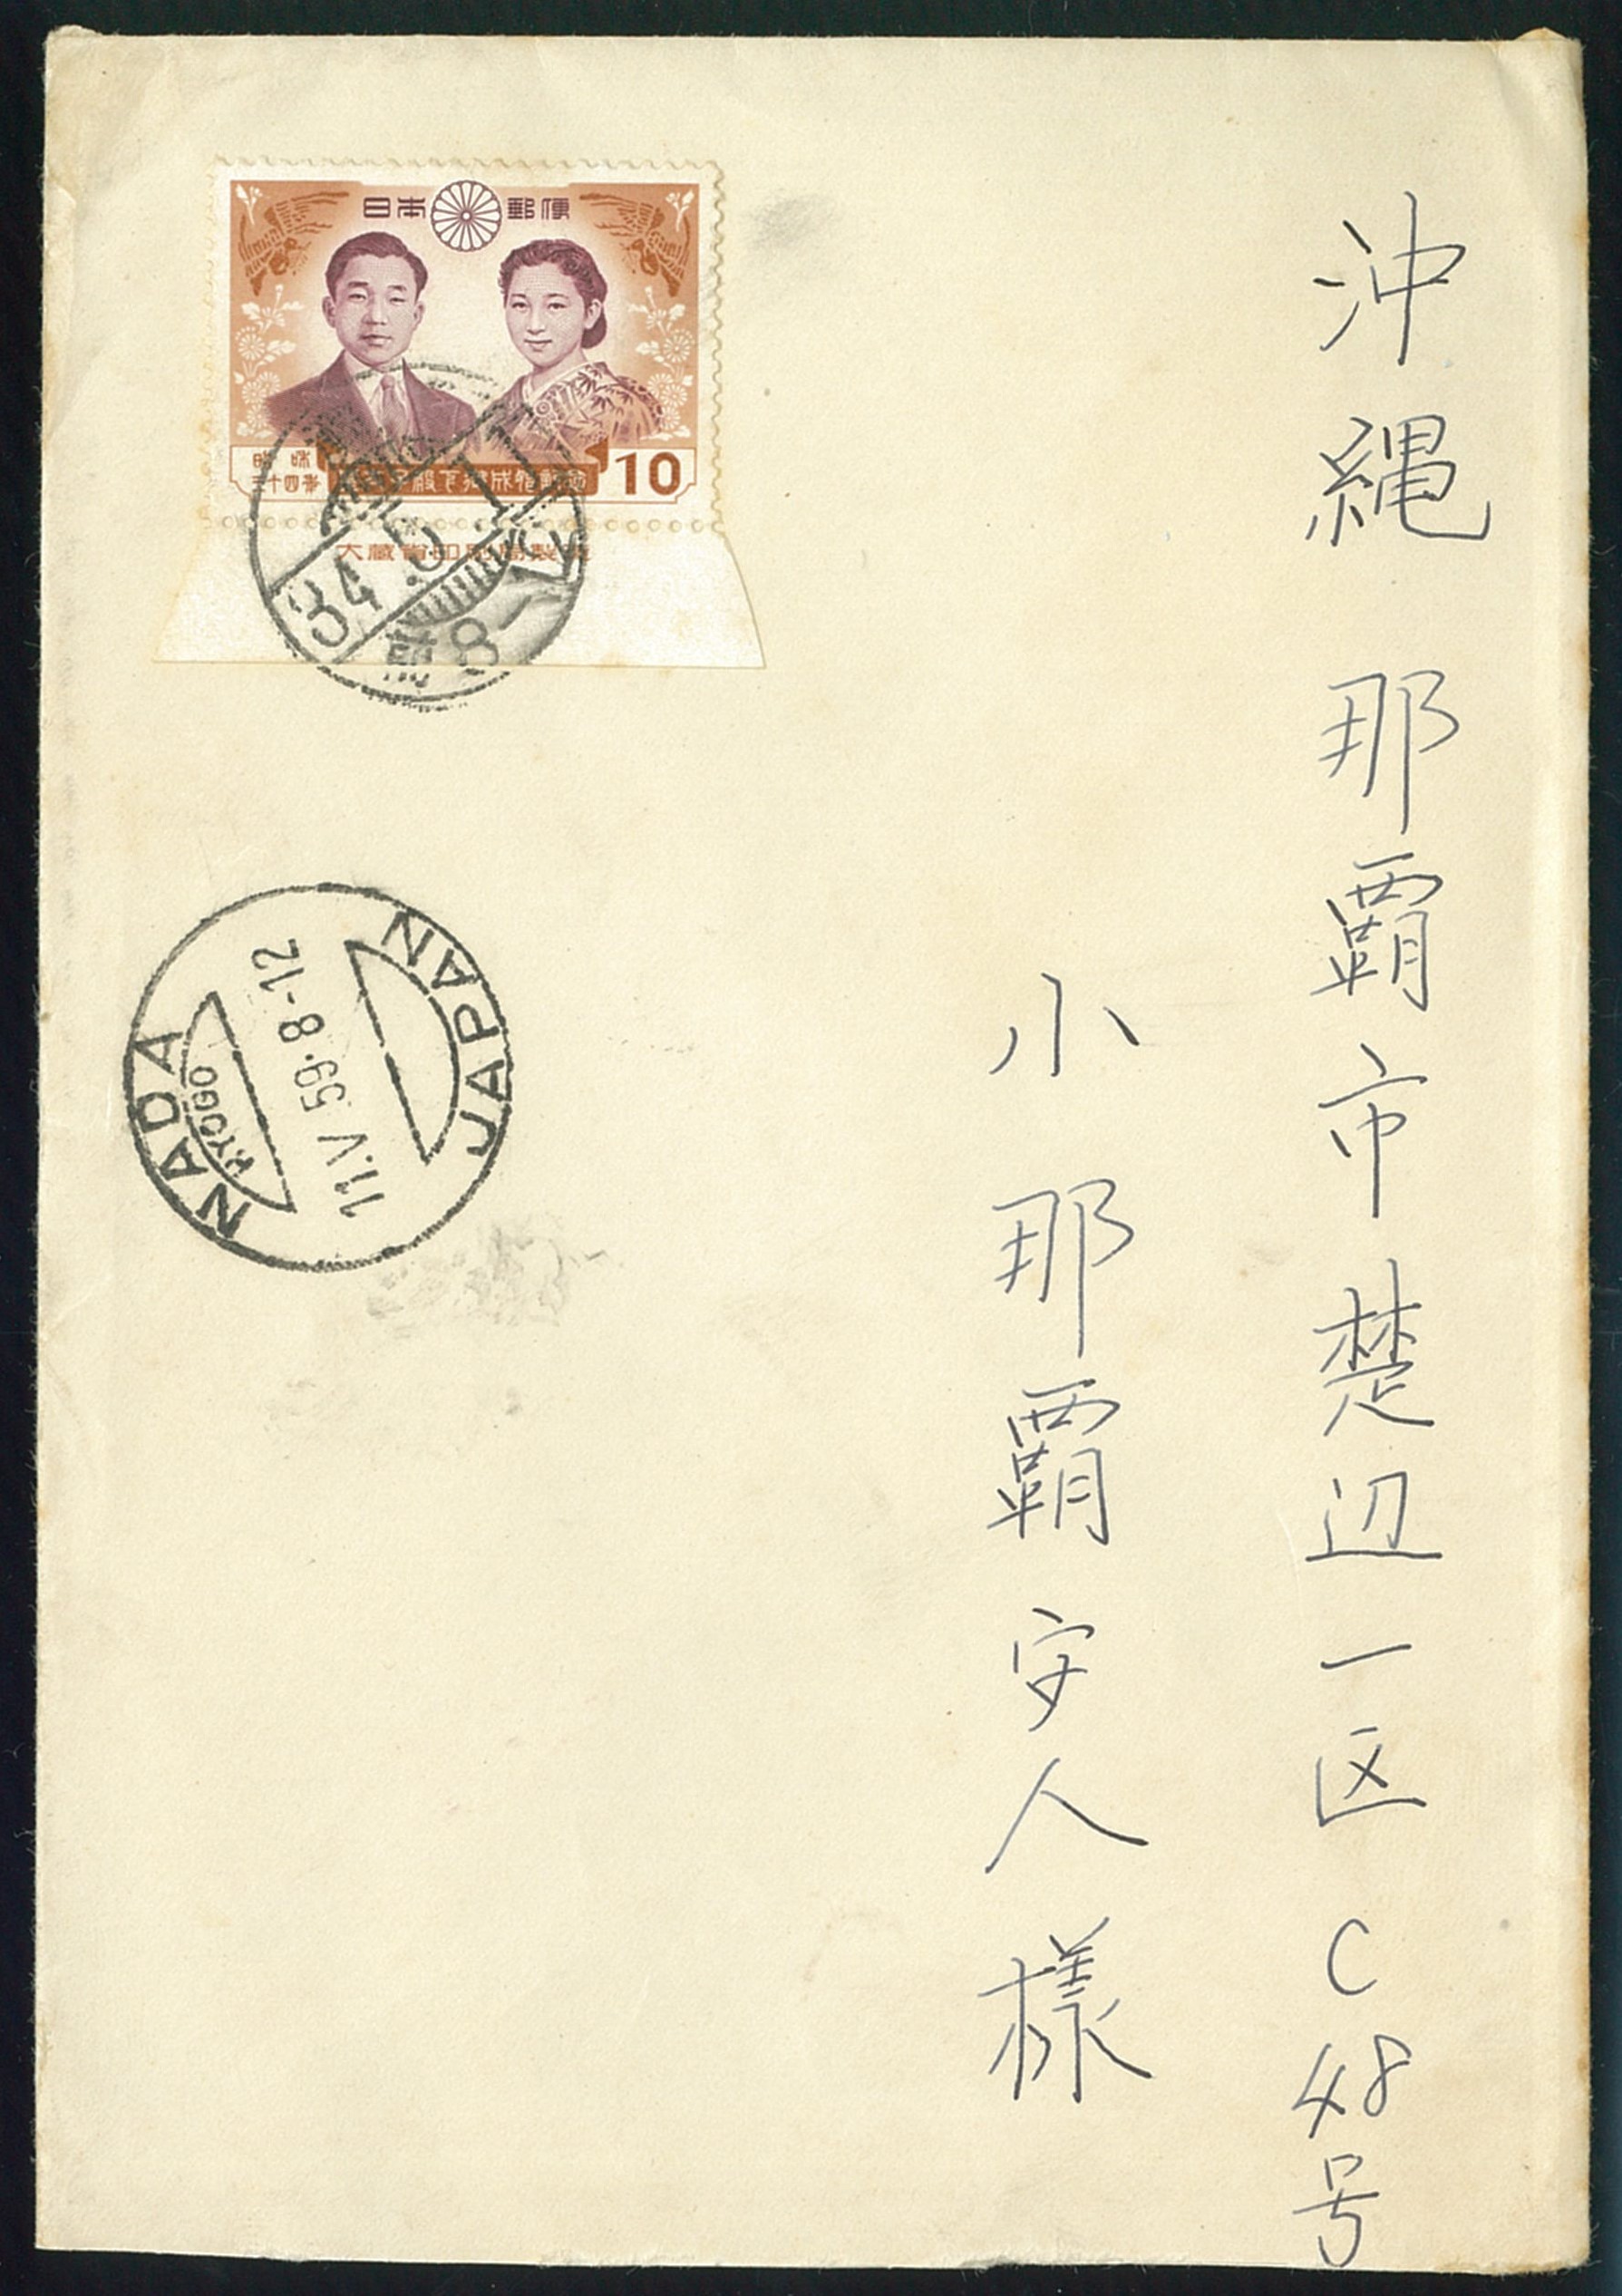 沖縄那覇市楚辺一区C48号
小那覇安人様
日本郵便
昭和
三十四年
10
大蔵省印刷局製造
34.5.11
灘
8-12
JAPAN
11.V 59.8-12
HYOGO
NADA